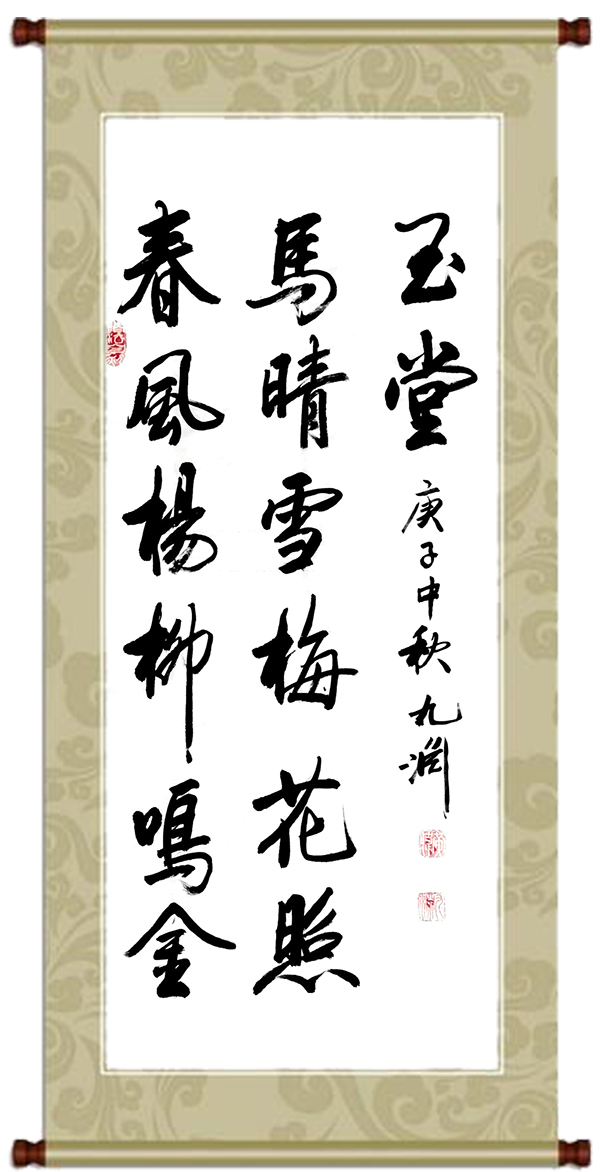 春風楊柳鳴金
馬晴雪梅花照
玉堂
庚子中秋九淵